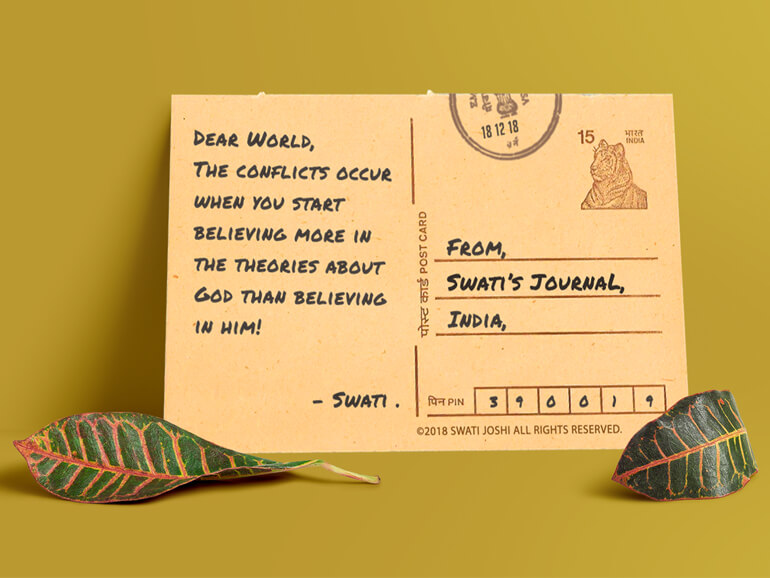 DEAR WORLD,
THE CONFLICTS OCCUR
WHEN YOU START
BELIEVING MORE IN
THE THEORIES ABOUT
GOD THAN BELIEVING
IN HIM!
- SWATI .
18 12 18
15
भारत
INDIA
पोस्ट कार्ड POST CARD
FROM,
SWATI'S JOURNAL,
INDIA,
पिन PIN 3 9 0 0 1 9
©2018 SWATI JOSHI ALL RIGHTS RESERVED.